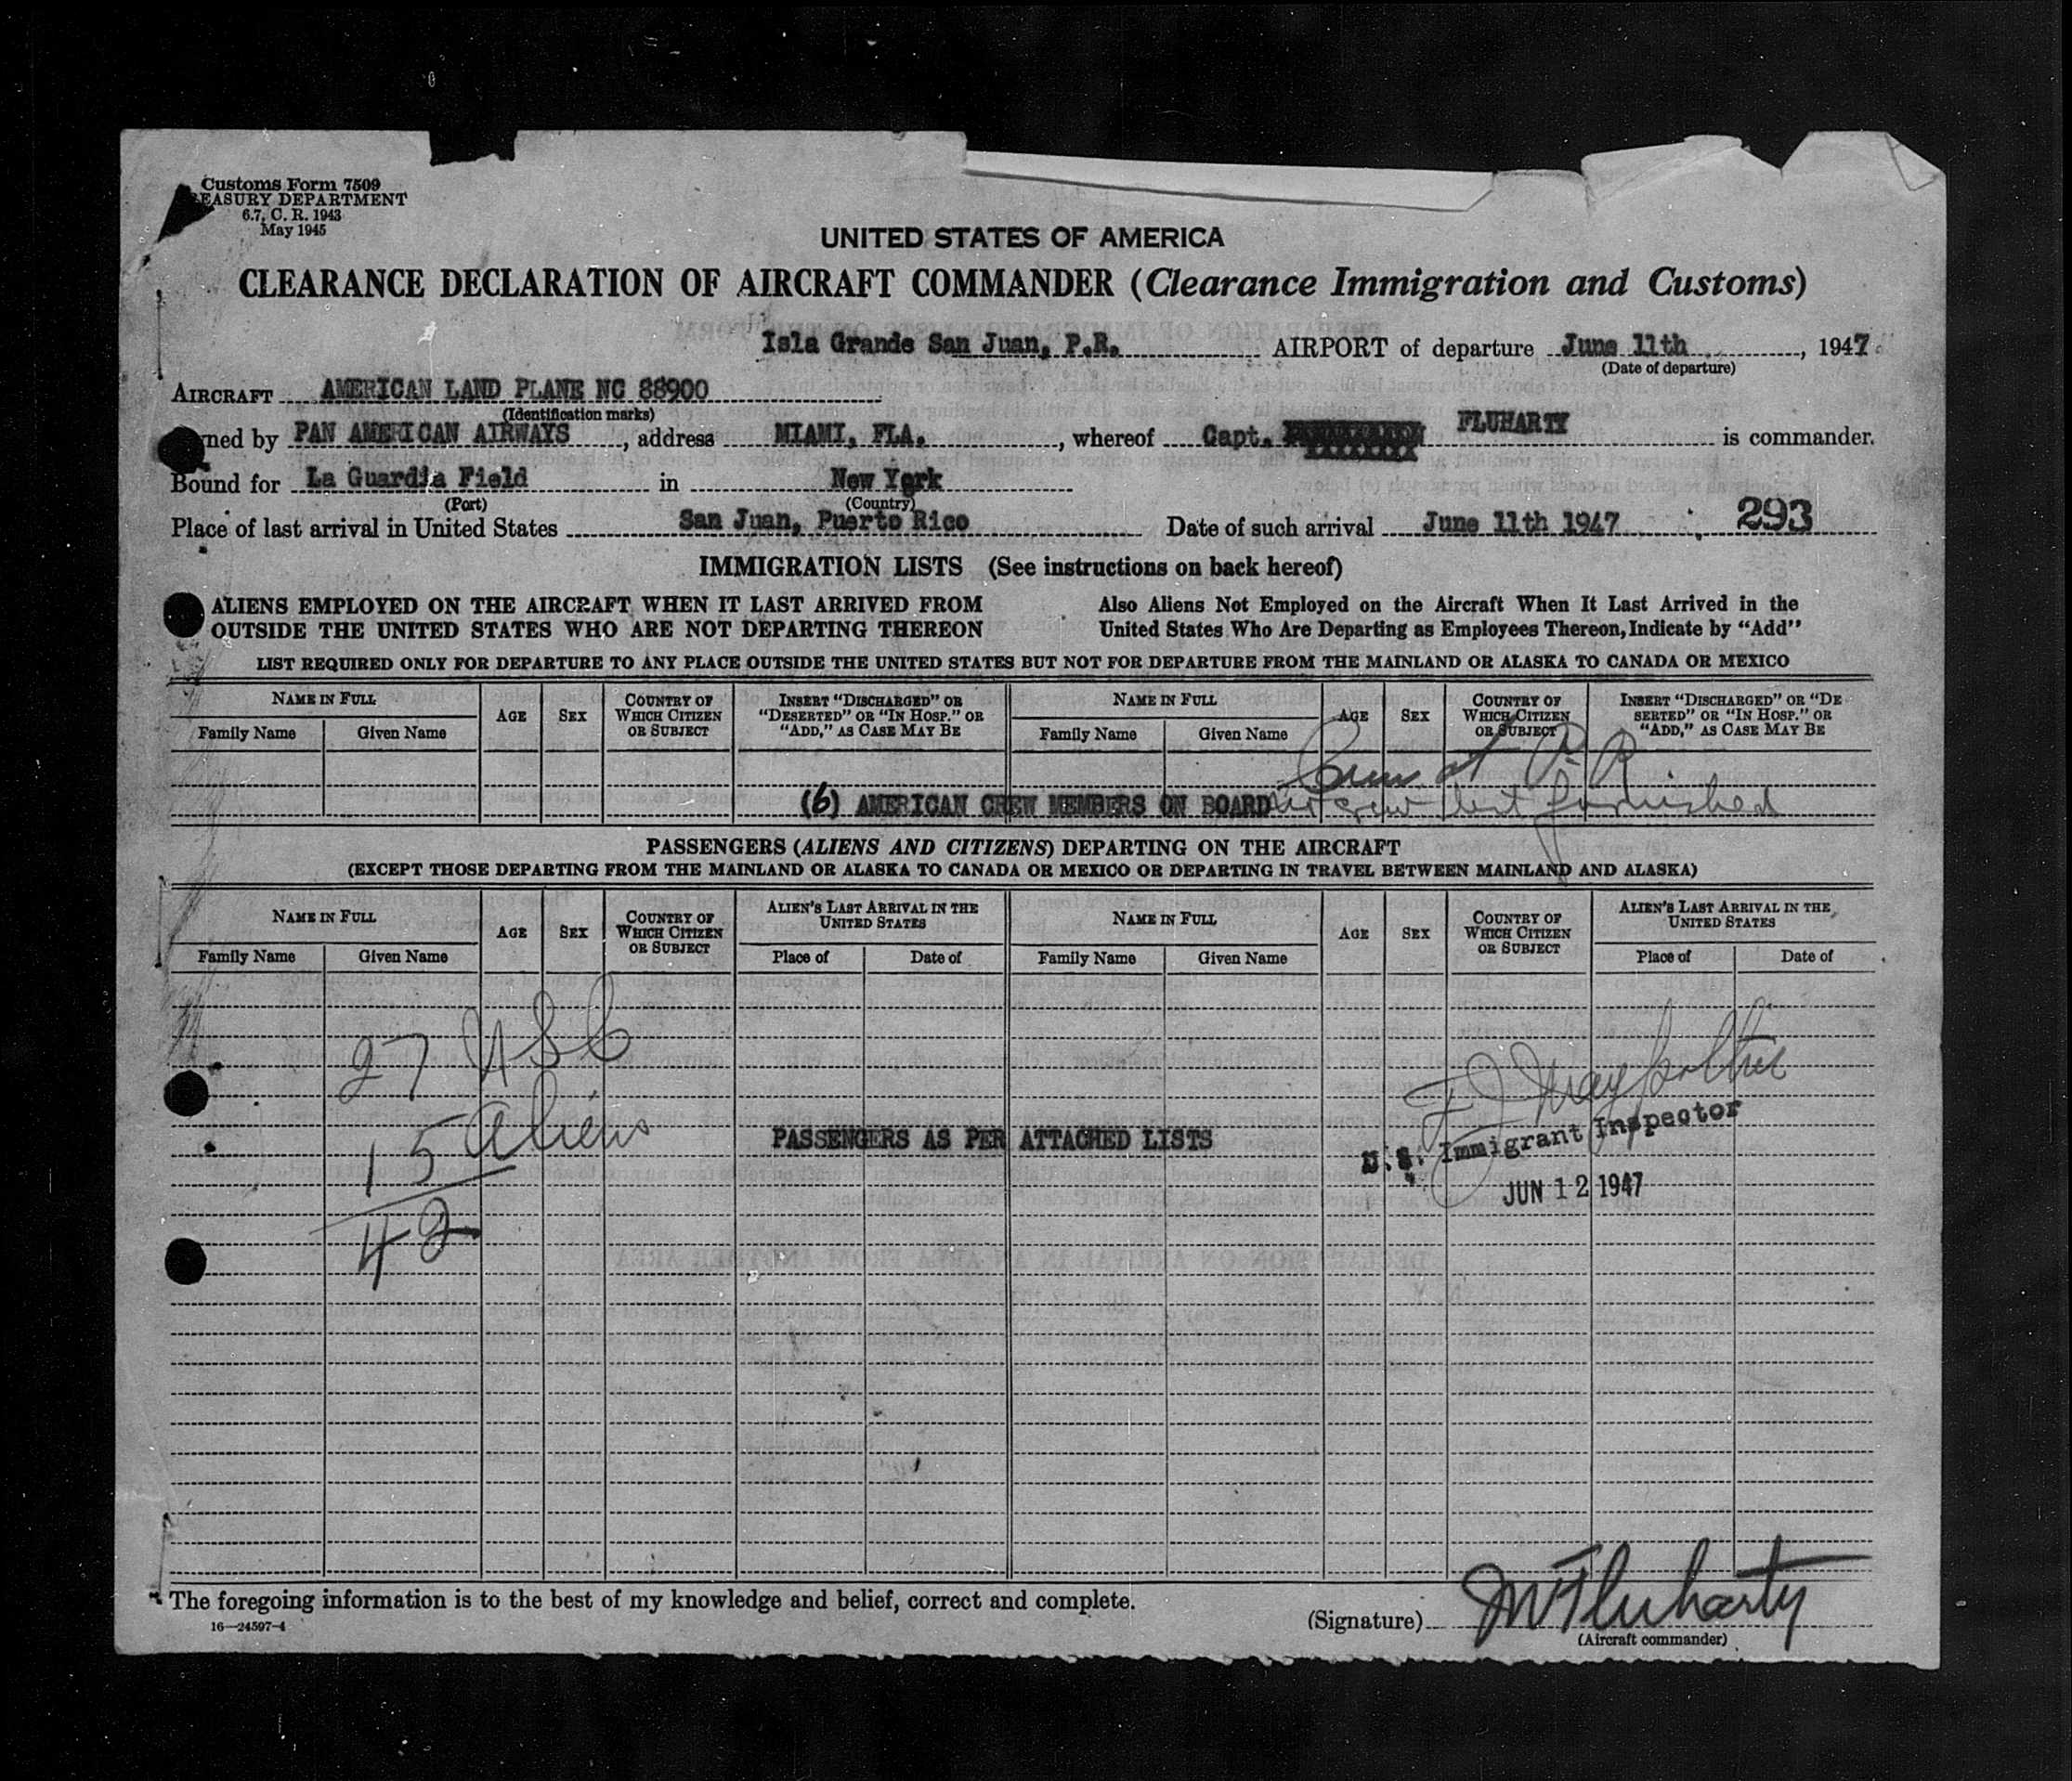 Customs Form 7509
TREASURY DEPARTMENT
6.7, C. R. 1943
May 1945
UNITED STATES OF AMERICA
CLEARANCE DECLARATION OF AIRCRAFT COMMANDER (Clearance Immigration and Customs)
Isla Grande San Juan, P.R. AIRPORT of departure June 11th, 1947
(Date of departure)
AIRCRAFT AMERICAN LAND PLANE NC 88900
(Identification marks)
ned by PAN AMERICAN AIRWAYS, address MIAMI, FLA., whereof Capt. FLUHARTY is commander.
Bound for La Guardia Field in New York
(Port) (Country)
Place of last arrival in United States San Juan, Puerto Rico Date of such arrival June 11th 1947 293
IMMIGRATION LISTS (See instructions on back hereof)
ALIENS EMPLOYED ON THE AIRCRAFT WHEN IT LAST ARRIVED FROM Also Aliens Not Employed on the Aircraft When It Last Arrived in the
OUTSIDE THE UNITED STATES WHO ARE NOT DEPARTING THEREON United States Who Are Departing as Employees Thereon, Indicate by "Add"
LIST REQUIRED ONLY FOR DEPARTURE TO ANY PLACE OUTSIDE THE UNITED STATES BUT NOT FOR DEPARTURE FROM THE MAINLAND OR ALASKA TO CANADA OR MEXICO
NAME IN FULL AGE SEX COUNTRY OF WHICH CITIZEN OR SUBJECT INSERT "DISCHARGED" OR "DESERTED" OR "IN HOSP." OR "ADD," AS CASE MAY BE NAME IN FULL AGE SEX COUNTRY OF WHICH CITIZEN OR SUBJECT INSERT "DISCHARGED" OR "DE SERTED" OR "IN HOSP." OR "ADD," AS CASE MAY BE
Family Name Given Name Family Name Given Name
at P. R.
(6) AMERICAN CREW MEMBERS ON BOARD crew list furnished
PASSENGERS (ALIENS AND CITIZENS) DEPARTING ON THE AIRCRAFT
(EXCEPT THOSE DEPARTING FROM THE MAINLAND OR ALASKA TO CANADA OR MEXICO OR DEPARTING IN TRAVEL BETWEEN MAINLAND AND ALASKA)
NAME IN FULL AGE SEX COUNTRY OF WHICH CITIZEN OR SUBJECT ALIEN'S LAST ARRIVAL IN THE UNITED STATES NAME IN FULL AGE SEX COUNTRY OF WHICH CITIZEN OR SUBJECT ALIEN'S LAST ARRIVAL IN THE UNITED STATES
Family Name Given Name Place of Date of Family Name Given Name Place of Date of
27 USC
15 Aliens
PASSENGERS AS PER ATTACHED LISTS
U.S. Immigrant Inspector
JUN 12 1947
42
The foregoing information is to the best of my knowledge and belief, correct and complete.
(Signature) JM Fluharty
16—24597-4
(Aircraft commander)